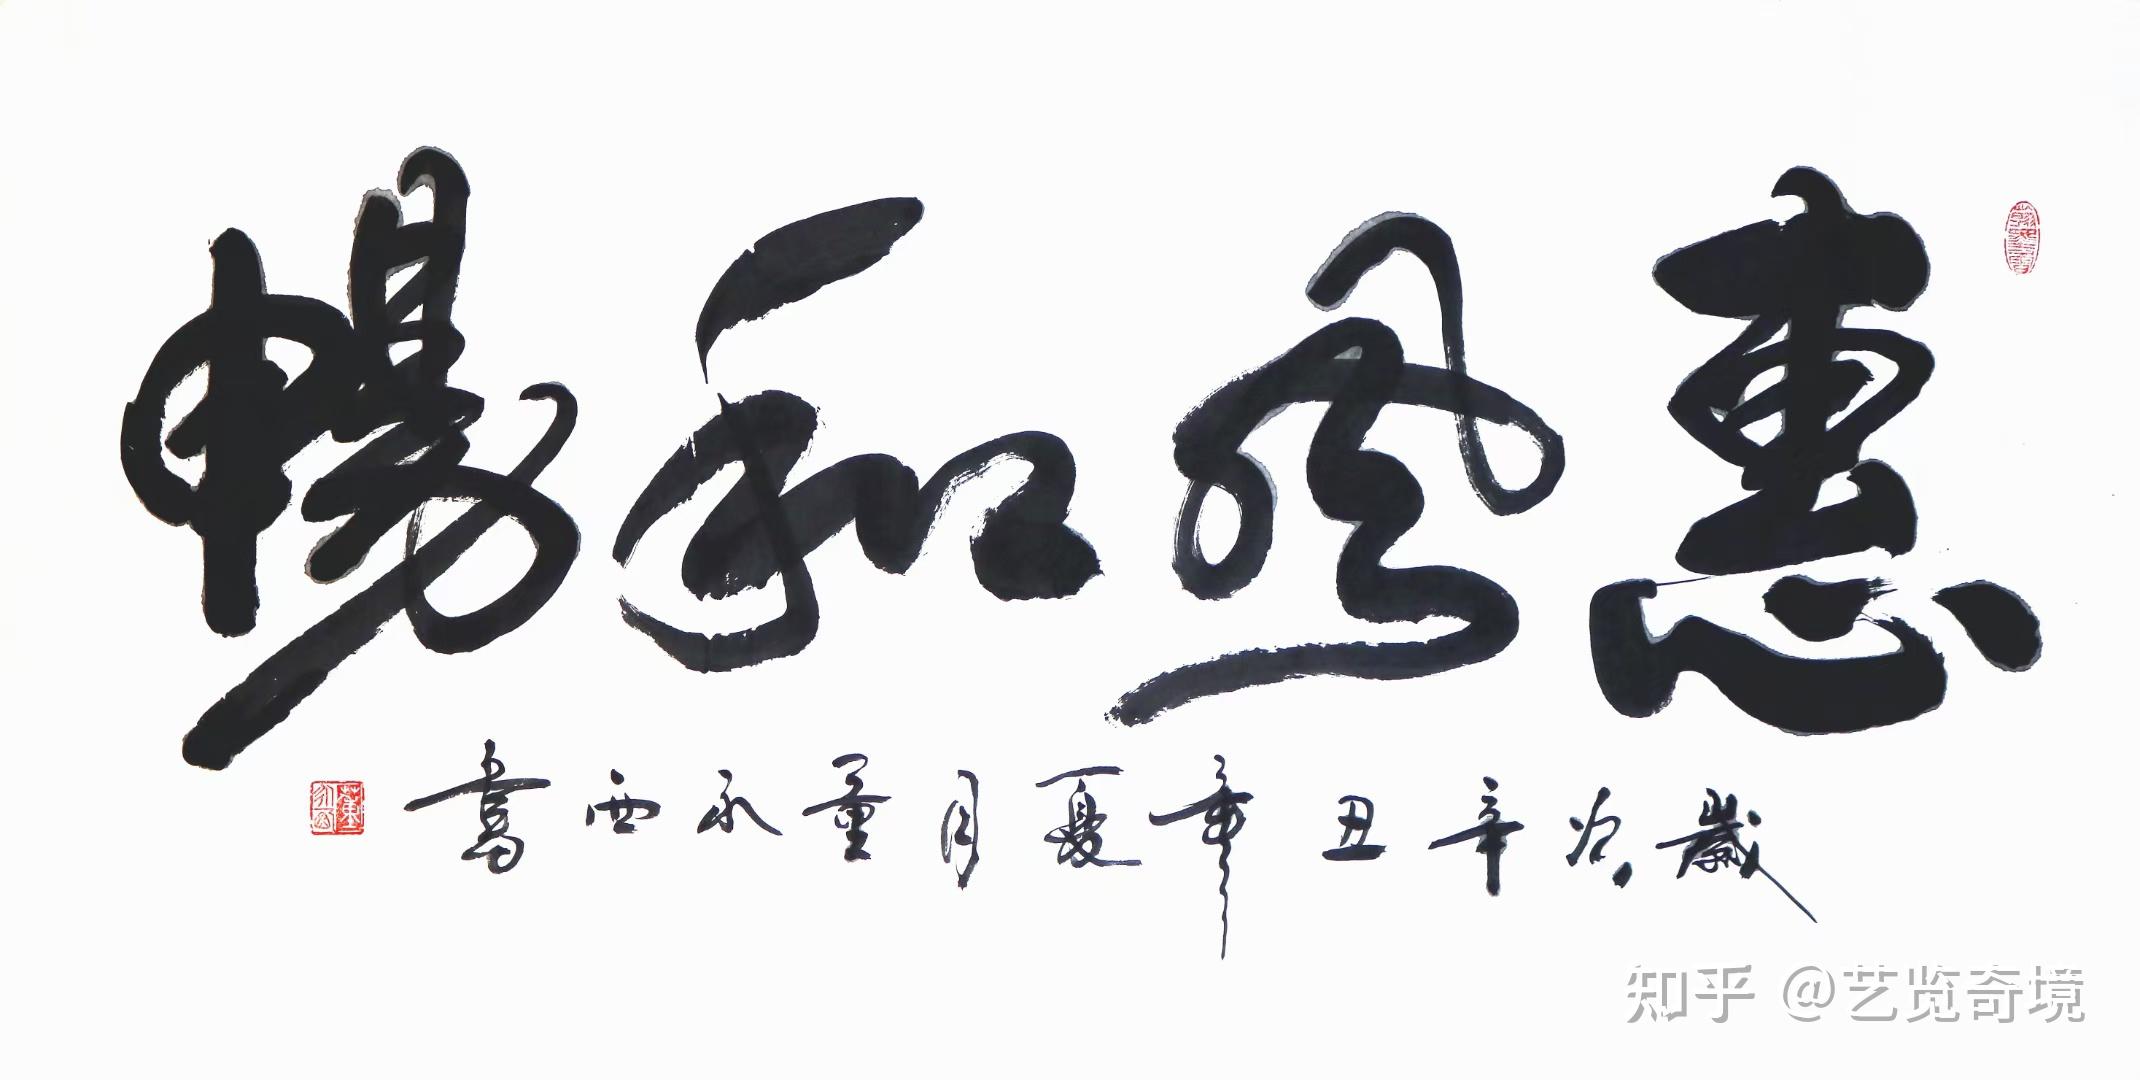 惠風和暢
歲次辛丑年夏月董永西書
知乎 @艺览奇境